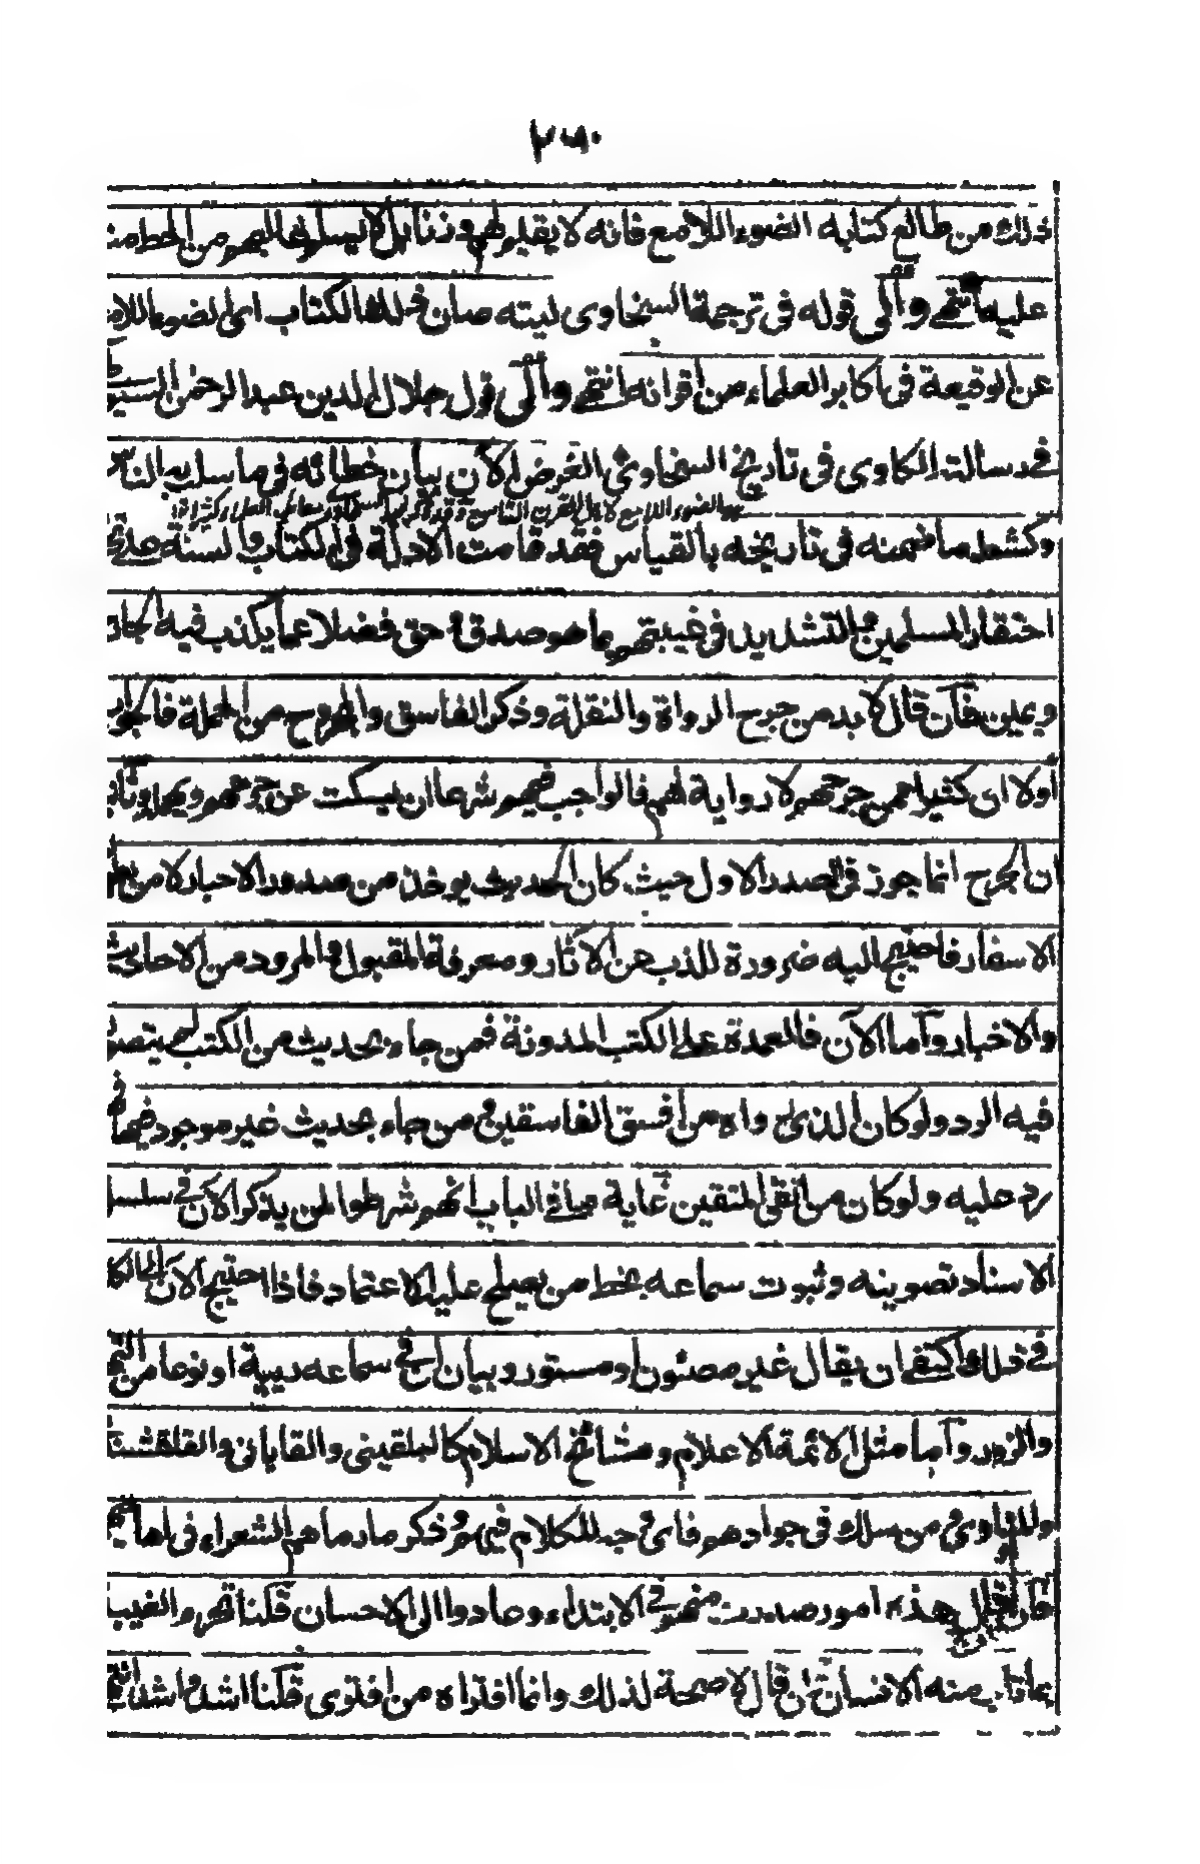 ٢٦٠
ذلك من طالع كتابه الضوء اللامع فانه لا يقيم لهم وزنا بل لا يسلم غالبهم من الحط منه
عليه انتهى والى قوله فى ترجمة السخاوى ليته صان ذلك الكتاب اى الضوء اللامع
عن الوقيعة فى اكابر العلماء من اقرانه انتهى والى قول جلال الدين عبد الرحمن السيوطى
فى رسالته الكاوى فى تاريخ السخاوى الغرض الآن بيان خطائه فى ما سلب به الناس
هو الضوء اللامع لاهل القرن التاسع وقد ذكر فيها
وكشط ما ضمنه فى تاريخه بالقياس فقد قامت الادلة فى الكتاب والسنة على تحريم
احتقار المسلمين والتشديد فى غيبتهم بما هو صدق وحق فضلا عما يكذب فيه الجارح
ويمين فان قال لا بد من جرح الرواة والنقلة وذكر الفاسق والمجروح من الحملة فالجواب
اولا ان كثيرا ممن جرحهم لا رواية لهم فالواجب فيهم شرعا ان يسكت عن جرحهم ويهملوا وثانيا
ان الجرح انما جوز فى الصدر الاول حيث كان الحديث يوخذ من صدور الاحبار لا من بطون
الاسفار فاحتيج اليه ضرورة للذب عن الآثار ومعرفة المقبول والمردود من الاحاديث
والاخبار وأما الآن فالعمدة على الكتب المدونة فمن جاء بحديث من الكتب لم يتصور
فيه الرد ولو كان الذى رواه من افسق الفاسقين ومن جاء بحديث غير موجود فيها
رد عليه ولو كان من اتقى المتقين غاية ما فى الباب انهم شرطوا لمن يذكر الآن فى سلسلة
الاسناد تصوينه وثبوت سماعه بخط من يصلح عليه الاعتماد فاذا احتيج الآن الى الكلام
فى ذلك اكتفى ان يقال غير مصئون او مستور وبيان ان فى سماعه ريبة او نوعا من التهمة
والزور وأما مثل الائمة الاعلام ومشائخ الاسلام كالبلقينى والقاياتى والقلقشندى
والمناوى ومن سلك فى جوادهم فاى وجه للكلام فيهم وذكر ما رماهم الشعراء فى اهاجيهم
فان قال هذه امور صدرت منهم فى الابتداء وصادوا الى الاحسان قلنا تحرم الغيبة
بما تاب منه الانسان ان قال لا صحة لذلك وانما افتراه من افترى قلنا اشد واشد اثما